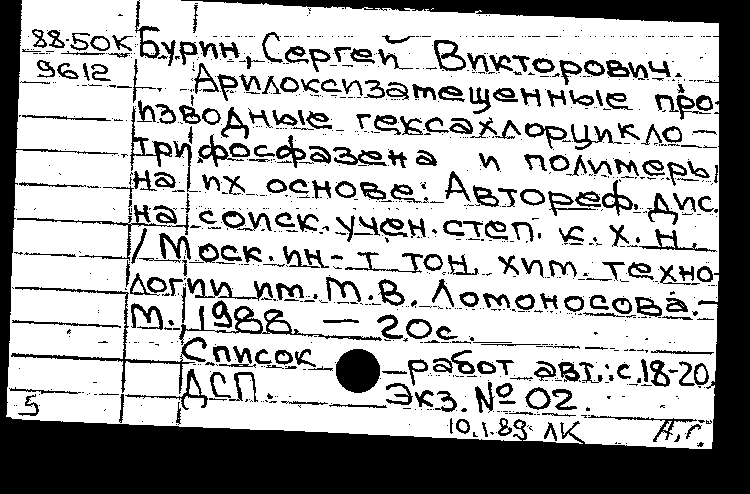 88-50К Бурин, Сергей Викторович.
9612 Арилоксизамещенные про-
изводные гексахлорцикло-
трифосфазена и полимеры
на их основе: Автореф. дис.
на соиск. учен. степ. к. х. н.
/ Моск. ин-т тон. хим. техно-
логии им. М. В. Ломоносова. -
М., 1988. - 20с.
Список работ авт.: с. 18-20.
ДСП. Экз. № 02.
5 10.1.89 ЛК А.Г.